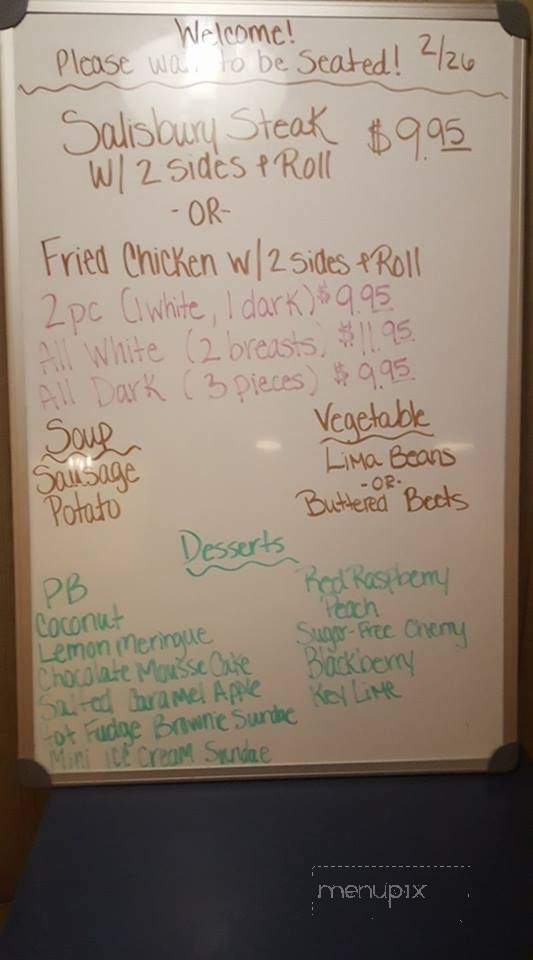 Welcome!
Please wait to be Seated! 2/26
Salisbury Steak $9.95
W/ 2 Sides + Roll
-OR-
Fried Chicken W/ 2 sides + Roll
2pc (1 white, 1 dark) $9.95
All White (2 breasts) $11.95
All Dark (3 pieces) $9.95
Soup
Sausage
Potato
Vegetable
Lima Beans
-OR-
Buttered Beets
Desserts
PB
Coconut
Lemon Meringue
Chocolate Mousse Cake
Salted Caramel Apple
Hot Fudge Brownie Sundae
Mini Ice Cream Sundae
Red Raspberry
Peach
Sugar-Free Cherry
Blackberry
Key Lime
menupix